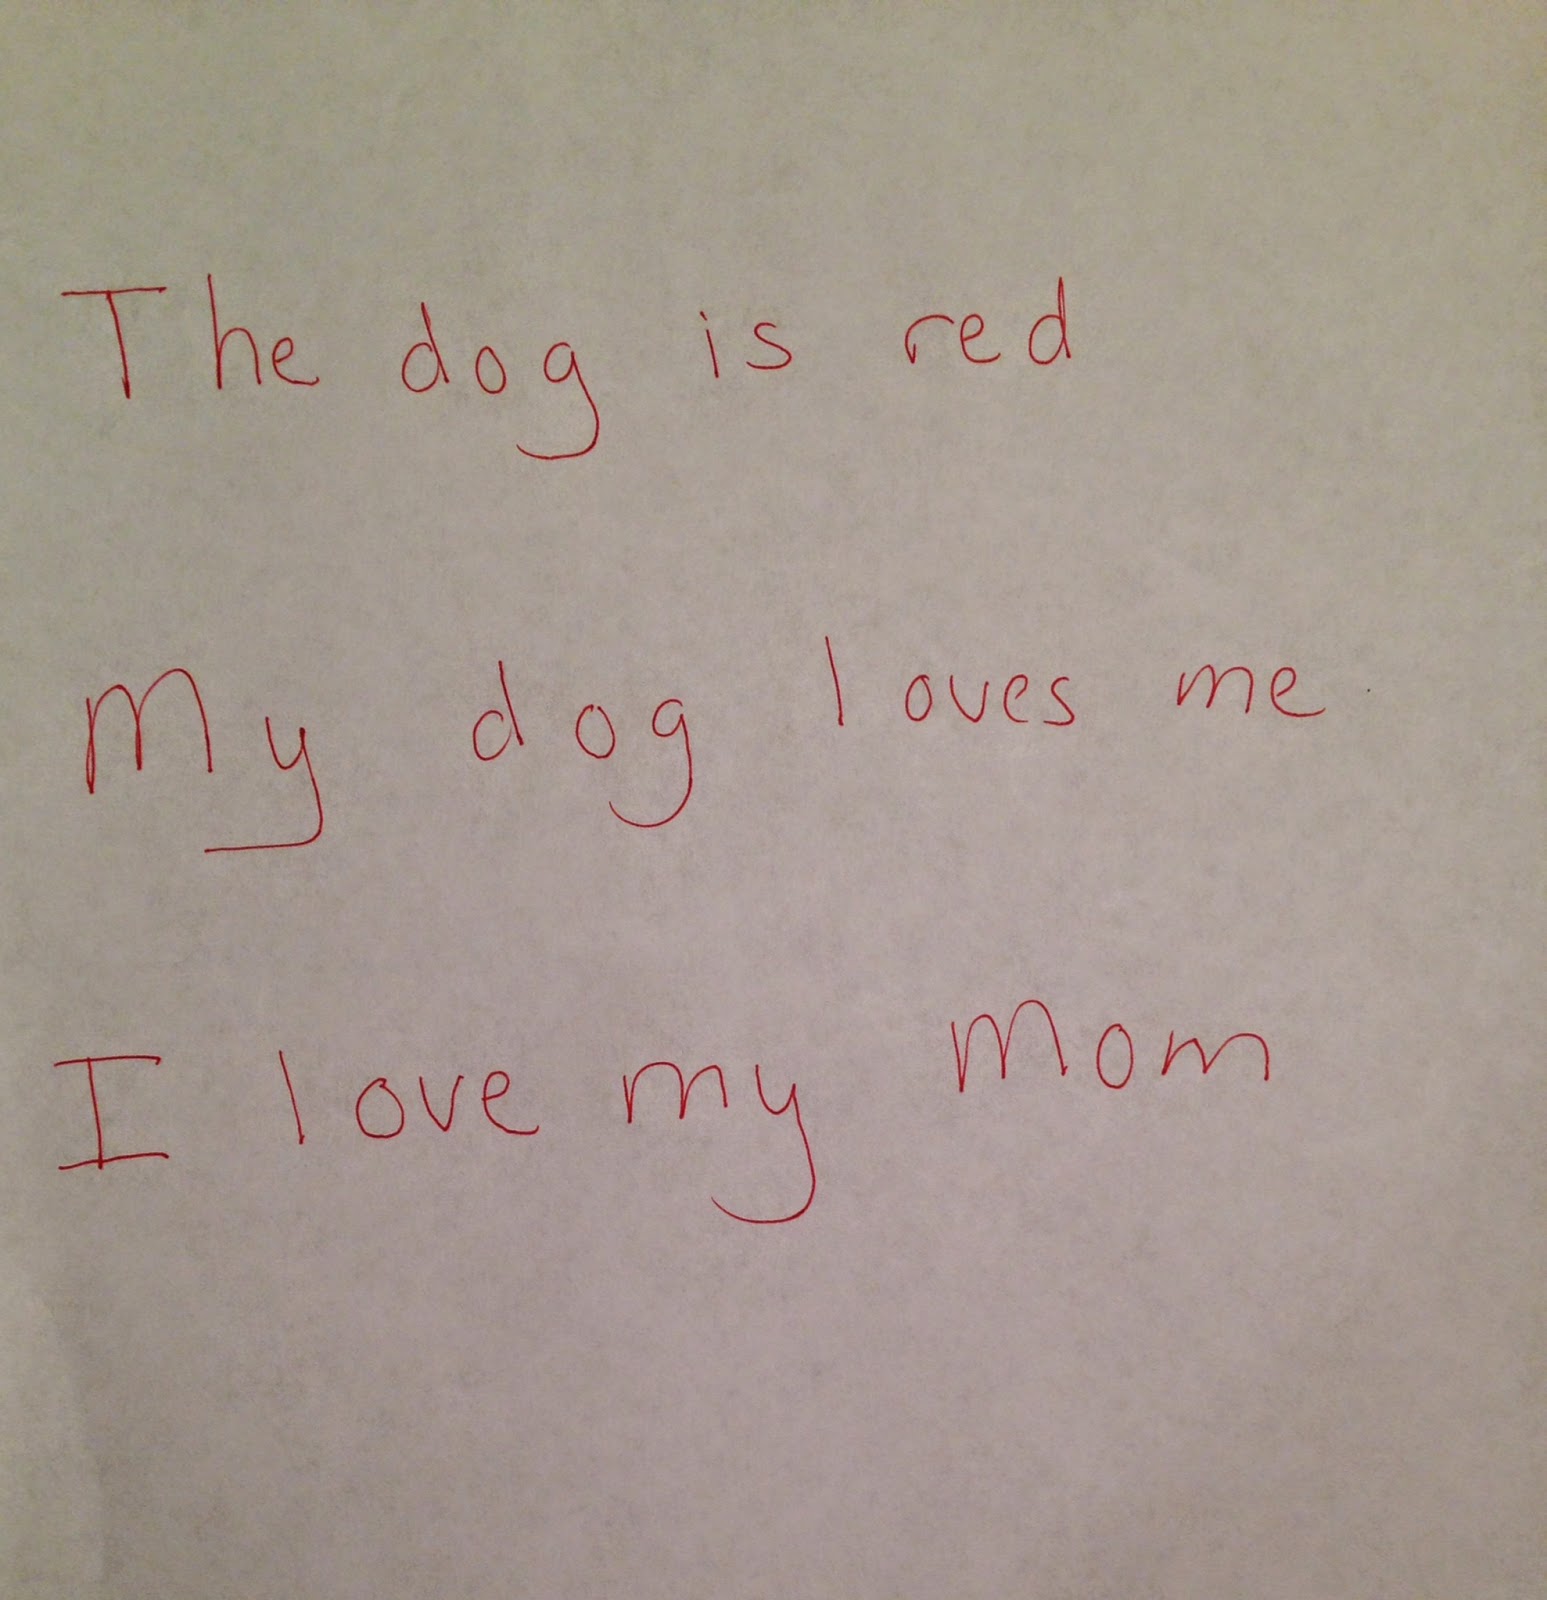 The dog is red
My dog loves me
I love my Mom